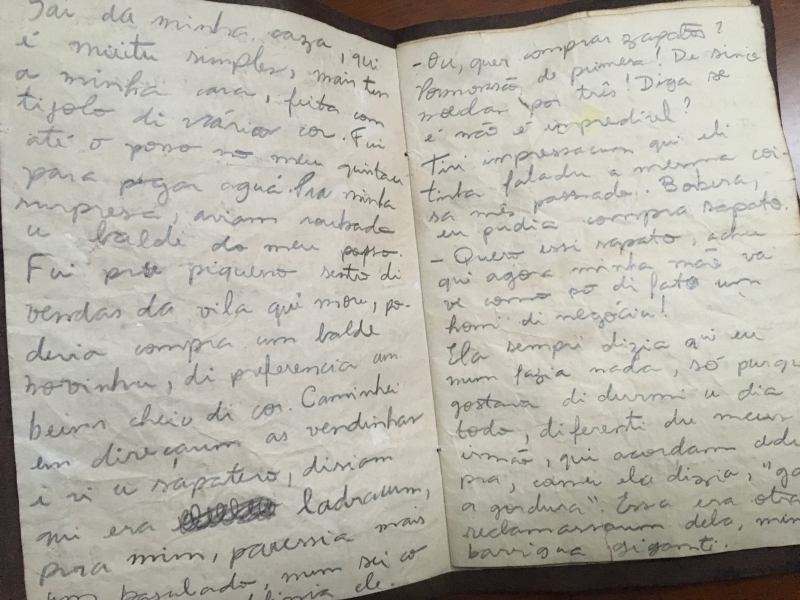 Saí da minha caza, qui
é muitu simples, mais tem
a minha cara, feita com
tijolo di vários cor. Fui
até o posso no meu quintau
para pegar aguá. Pra minha
surpresa, aviam roubado
u baldi do meu posso.
Fui pro piqueno sentro di
vendas da vila qui moru, po-
deria compra um balde
novinhu, di preferencia um
beum cheio di cor. Caminhei
em direçaum as vendinhas
i vi u sapatero, disiam
qui era ladraum,
pra mim, paressia mais
um basulado, num sei co
- Ou, quer comprar zapatos?
Pormossão, de primera! De sinco
moedas por três! Diga se
é não é imperdível?
Tivi impressaum qui eli
tinha faladu a mesma coi-
sa mês passado. Bobera,
eu pudia compra sapato.
- Quero essi sapato, achu
qui agora minha mãe va
ve como so di fato um
homi di negócio!
Ela sempri dizia qui eu
num fazia nada, só purqu
gostava di durmi u dia
todo, diferenti dus meus
irmão, qui acordam cedu
pra, comu ela dizia, "ga
a gordura". Essa era otra
reclamassaum dela, min
barrigua giganti.